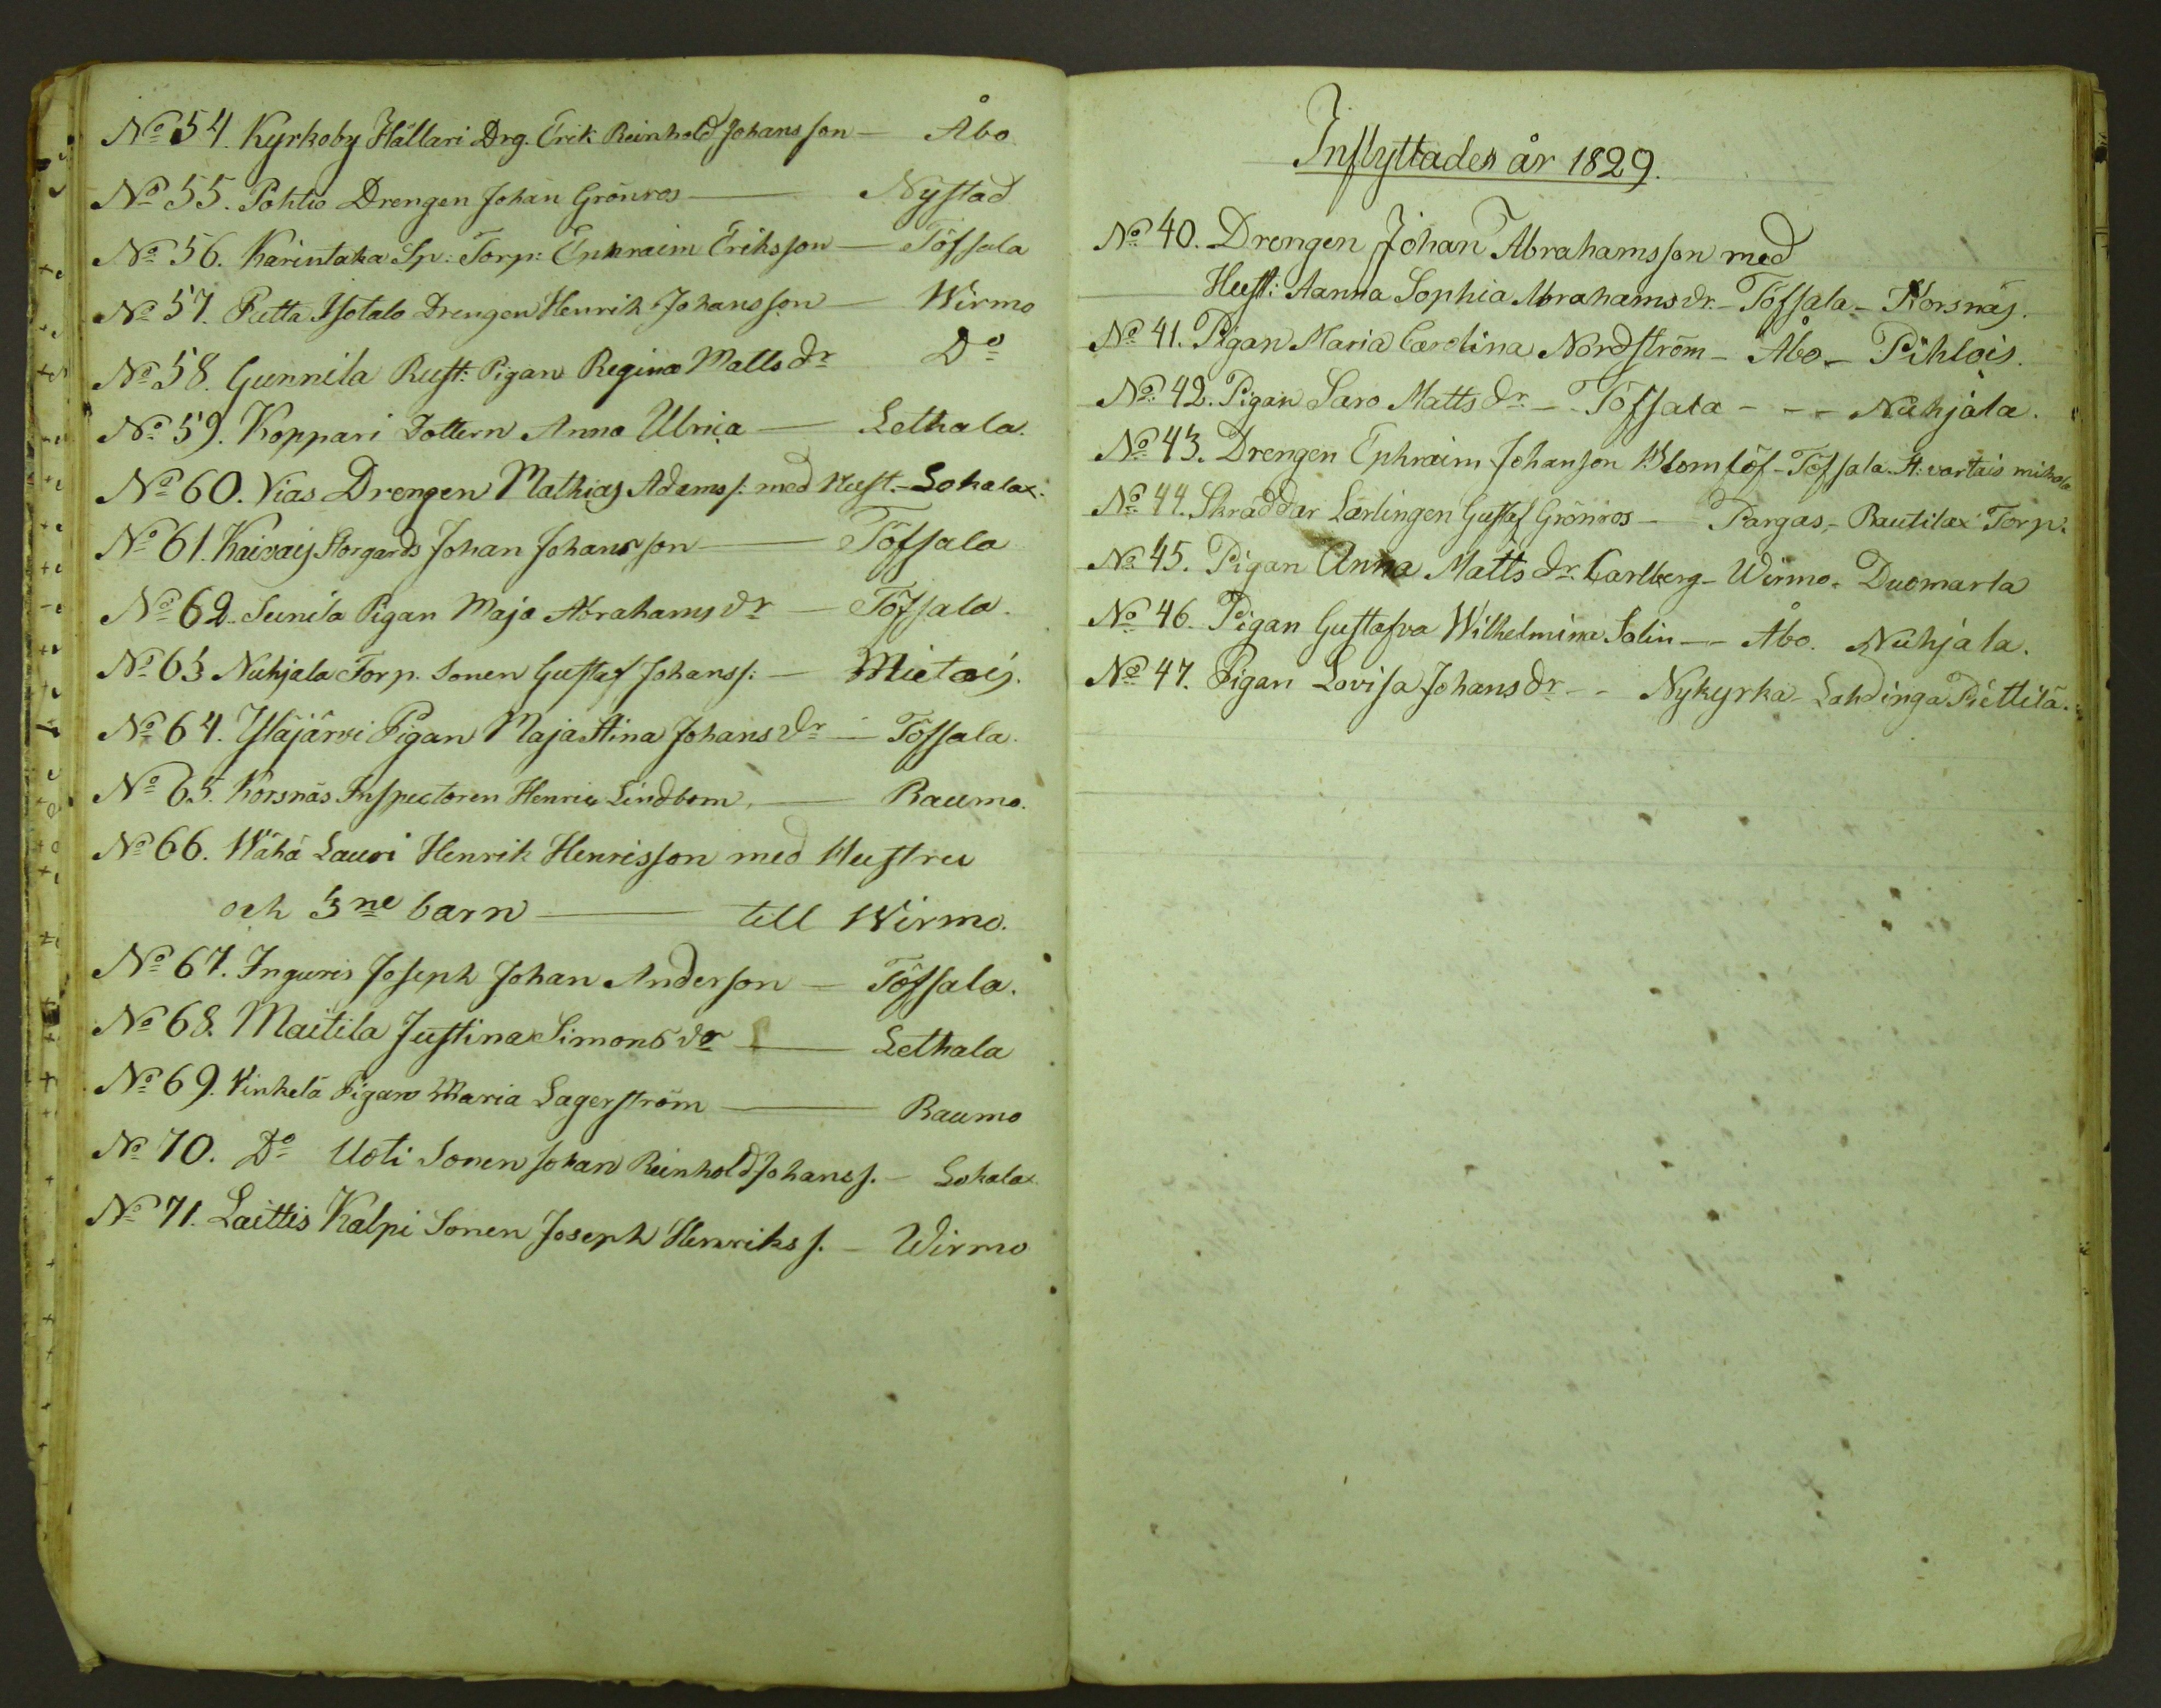 No 54. Kyrkoby Hällari Drg. Erik Reinhold Johansson — Åbo
No 55. Pohtio Drengen Johan Grönros — Nystad
No 56. Karintaka Sp: Torp: Ephraim Eriksson — Töfsala
No 57. Putta Isotalo Drengen Henrik Johansson — Wirmo
No 58. Gunnila Rust: Pigan Regina Matts dr Do
No 59. Koppari Dottern Anna Ulrica — Lethala.
No 60. Vias Drengen Mathias Adams s: med Hust. — Lokalax.
No 61. Kaivais Storgards Johan Johansson — Töfsala
No 62. Sunila Pigan Maja Abrahams dr — Töfsala.
No 63 Nuhjala Torp. Sonen Gustaf Johans s: — Mietois.
No 64. Yläjärvi Pigan Maja Stina Johans dr — Töfsala.
No 65. Korsnäs Inspectoren Henric Lindbom, — Raumo.
No 66. Wähä Lauri Henrik Henrisson med Hustru
och 3ne barn — till Wirmo.
No 67. Inguris Joseph Johan Anderson — Töfsala.
No 68. Maitila Justina Simons dr — Lethala
No 69. Vinkelä Pigan Maria Lagerström — Raumo
No 70. Do Uoti Sonen Johan Reinhold Johans s. — Lokalax
No 71. Laittis Kalpi Sonen Joseph Henriks s. — Wirmo
Inflyttades år 1829.
No 40. Drengen Johan Abrahamsson med
Hust: Aanna Sophia Abrahams dr. — Töfsala — Korsnäs.
No 41. Pigan Maria Carolina Nordström — Åbo — Pihlois.
No 42. Pigan Saro Matts dr. — Töfsala - - - Nuhjala.
No 43. Drengen Ephraim Johanson Blomlöf — Töfsala. St: vartais mikola
No 44. Skräddar Lärlingen Gustaf Grönros — Pargas, — Rautilax Torp.
No 45. Pigan Anna Matts dr. Carlberg — Wirmo. Duomarla
No 46. Pigan Gustafva Wilhelmina Salin — Åbo. Nuhjala.
No 47. Pigan Lovisa Johans dr - - Nykyrka — Lahdinga Piettilä.